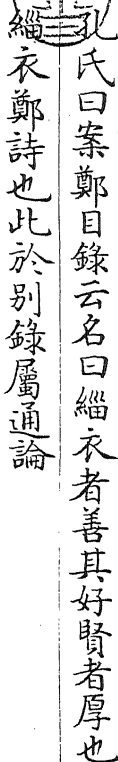 孔氏曰案鄭目錄云名曰緇衣者善其好賢者厚也
緇衣鄭詩也此於别錄屬通論